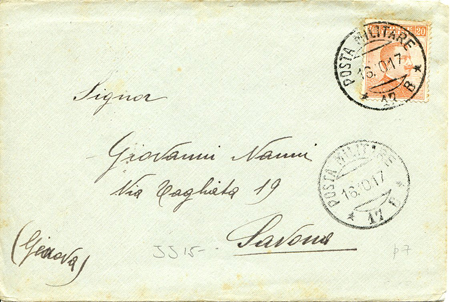 POSTA MILITARE
16.10.17
* 17 B *
20
Signor
Giovanni Nanni
Via Tagliata 19
Savona
(Genova)
POSTA MILITARE
16.10.17
* 17 B *
JS 15-